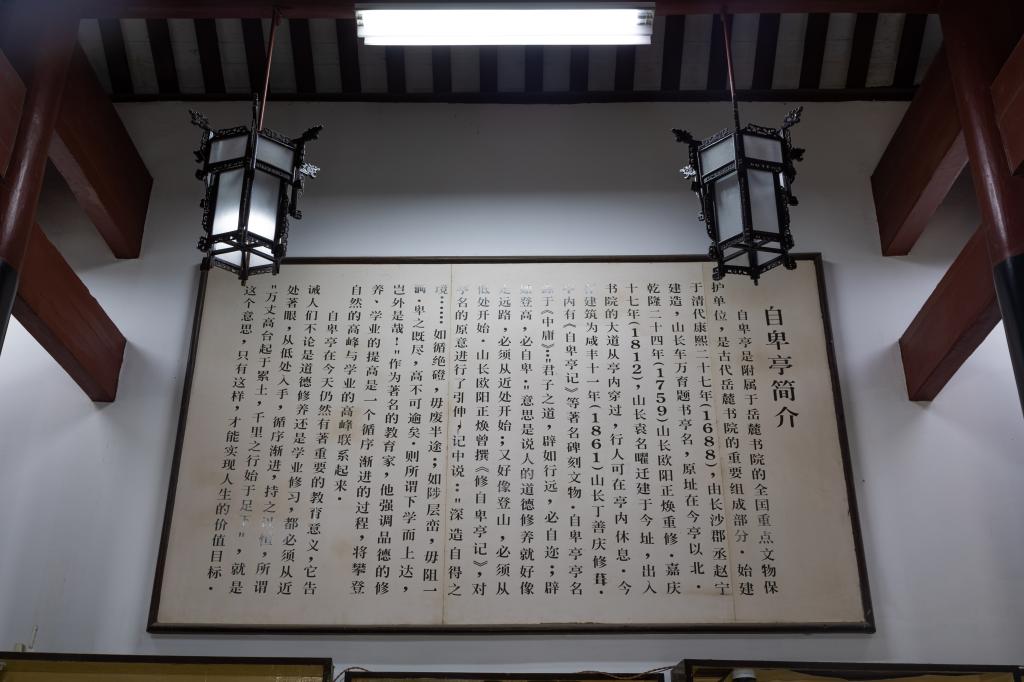 自卑亭简介
自卑亭是附属于岳麓书院的全国重点文物保
护单位，是古代岳麓书院的重要组成部分．始建
于清代康熙二十七年(1688)，由长沙郡丞赵宁
建造，山长车万育题书亭名，原址在今亭以北．
乾隆二十四年(1759)山长欧阳正焕重修．嘉庆
十七年(1812)，山长袁名曜迁建于今址，出入
书院的大道从亭内穿过，行人可在亭内休息．今
建筑为咸丰十一年(1861)山长丁善庆修葺．
内有《自卑亭记》等著名碑刻文物．自卑亭亭名
于《中庸》："君子之道，辟如行远，必自迩；辟
登高，必自卑．"意思是说人的道德修养就好像
走远路，必须从近处开始；又好像登山，必须从
低处开始．山长欧阳正焕曾撰《修自卑亭记》，对
亭名的原意进行了引伸，记中说："深造自得之
境……如循绝磴，毋废半途；如陟层峦，毋阻一
．卑之既尽，高不可逾矣．则所谓下学而上达，
岂外是哉！"作为著名的教育家，他强调品德的修
养、学业的提高是一个循序渐进的过程，将攀登
自然的高峰与学业的高峰联系起来．
自卑亭在今天仍然有著重要的教育意义，它告
诫人们不论是道德修养还是学业修习，都必须从近
处著眼，从低处入手，循序渐进，持之以恒，所谓
"万丈高台起于累土，千里之行始于足下"，就是
这个意思，只有这样，才能实现人生的价值目标．